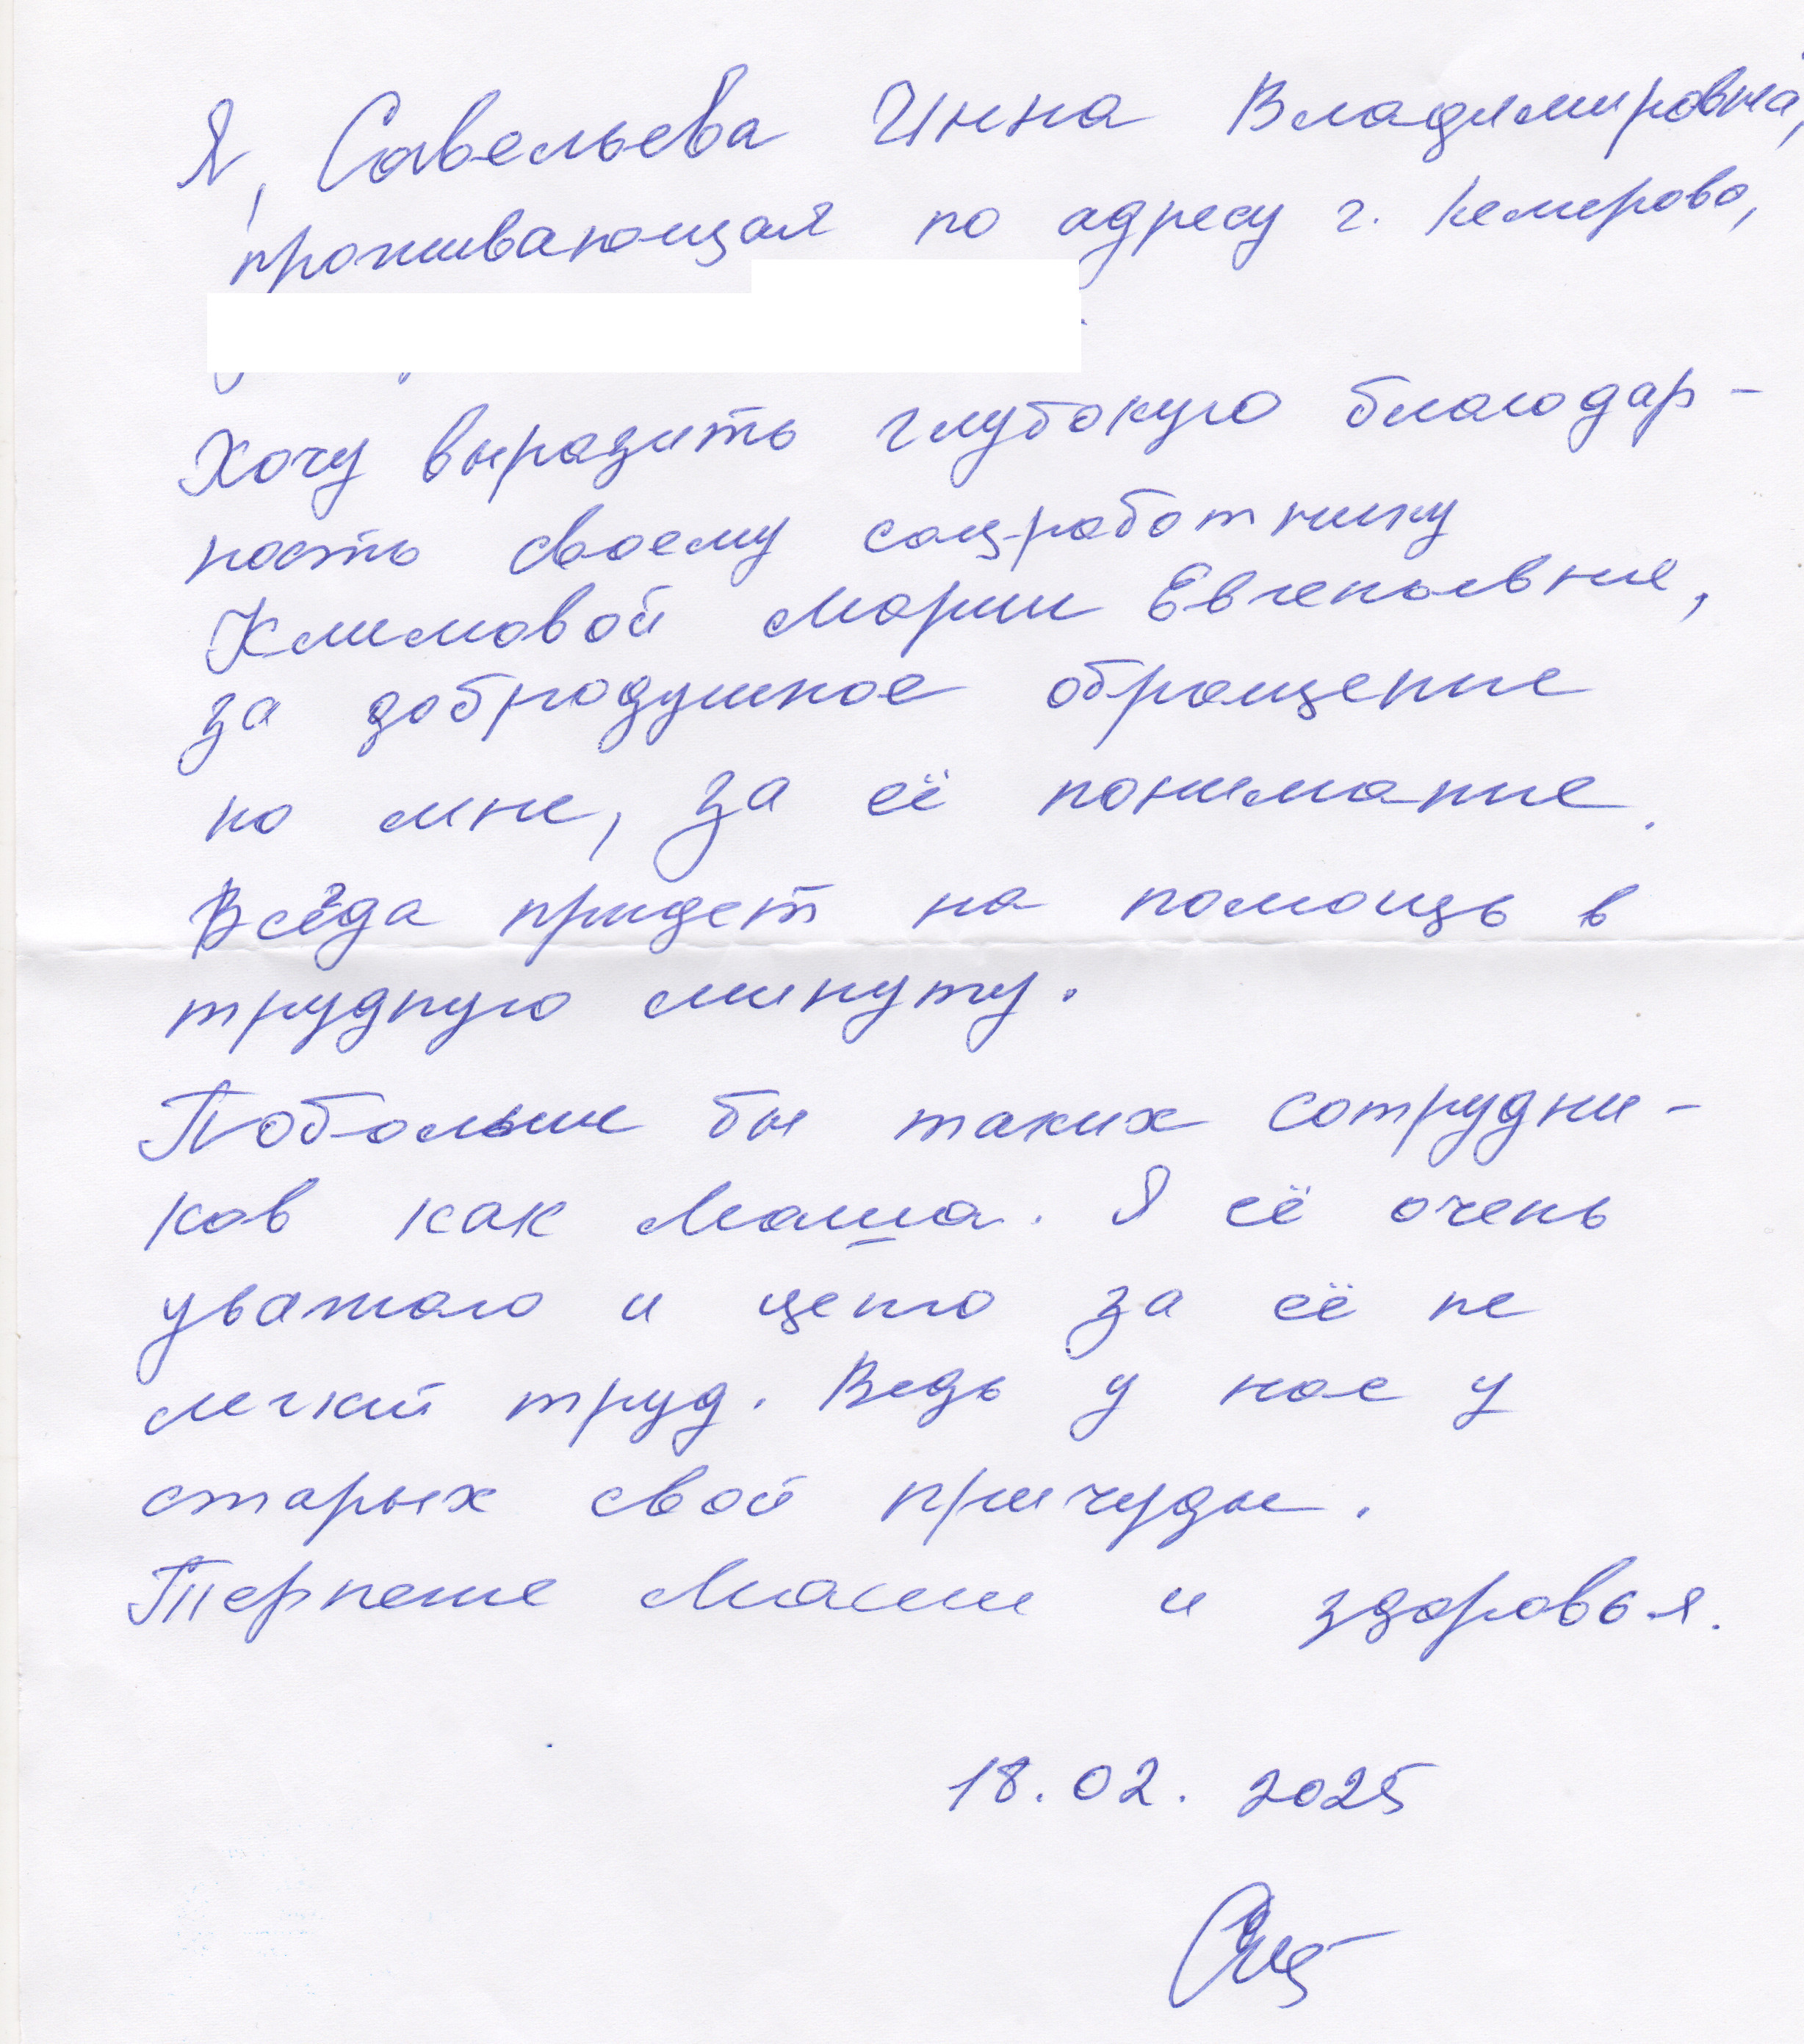 Я, Савельева Инна Владимировна,
проживающая по адресу г. Кемерово,
Хочу выразить глубокую благодар-
ность своему соц.работнику
Климовой Марии Евгеньевне,
за добродушное обращение
ко мне, за её понимание.
Всегда придет на помощь в
трудную минуту.
Побольше бы таких сотрудни-
ков как Маша. Я её очень
уважаю и ценю за её не
легкий труд. Ведь у нас у
старых свои причуды.
Терпение Маши и здоровья.
18.02.2025